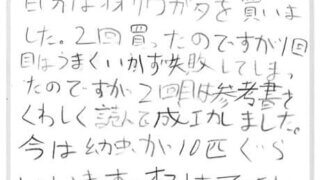 自分はオオクワガタを買いま
した。2回買ったのですが1回
目はうまくいかず失敗してしまっ
たのですが2回目は参考書を
くわしく読んで成功しました。
今は幼虫が10匹ぐら